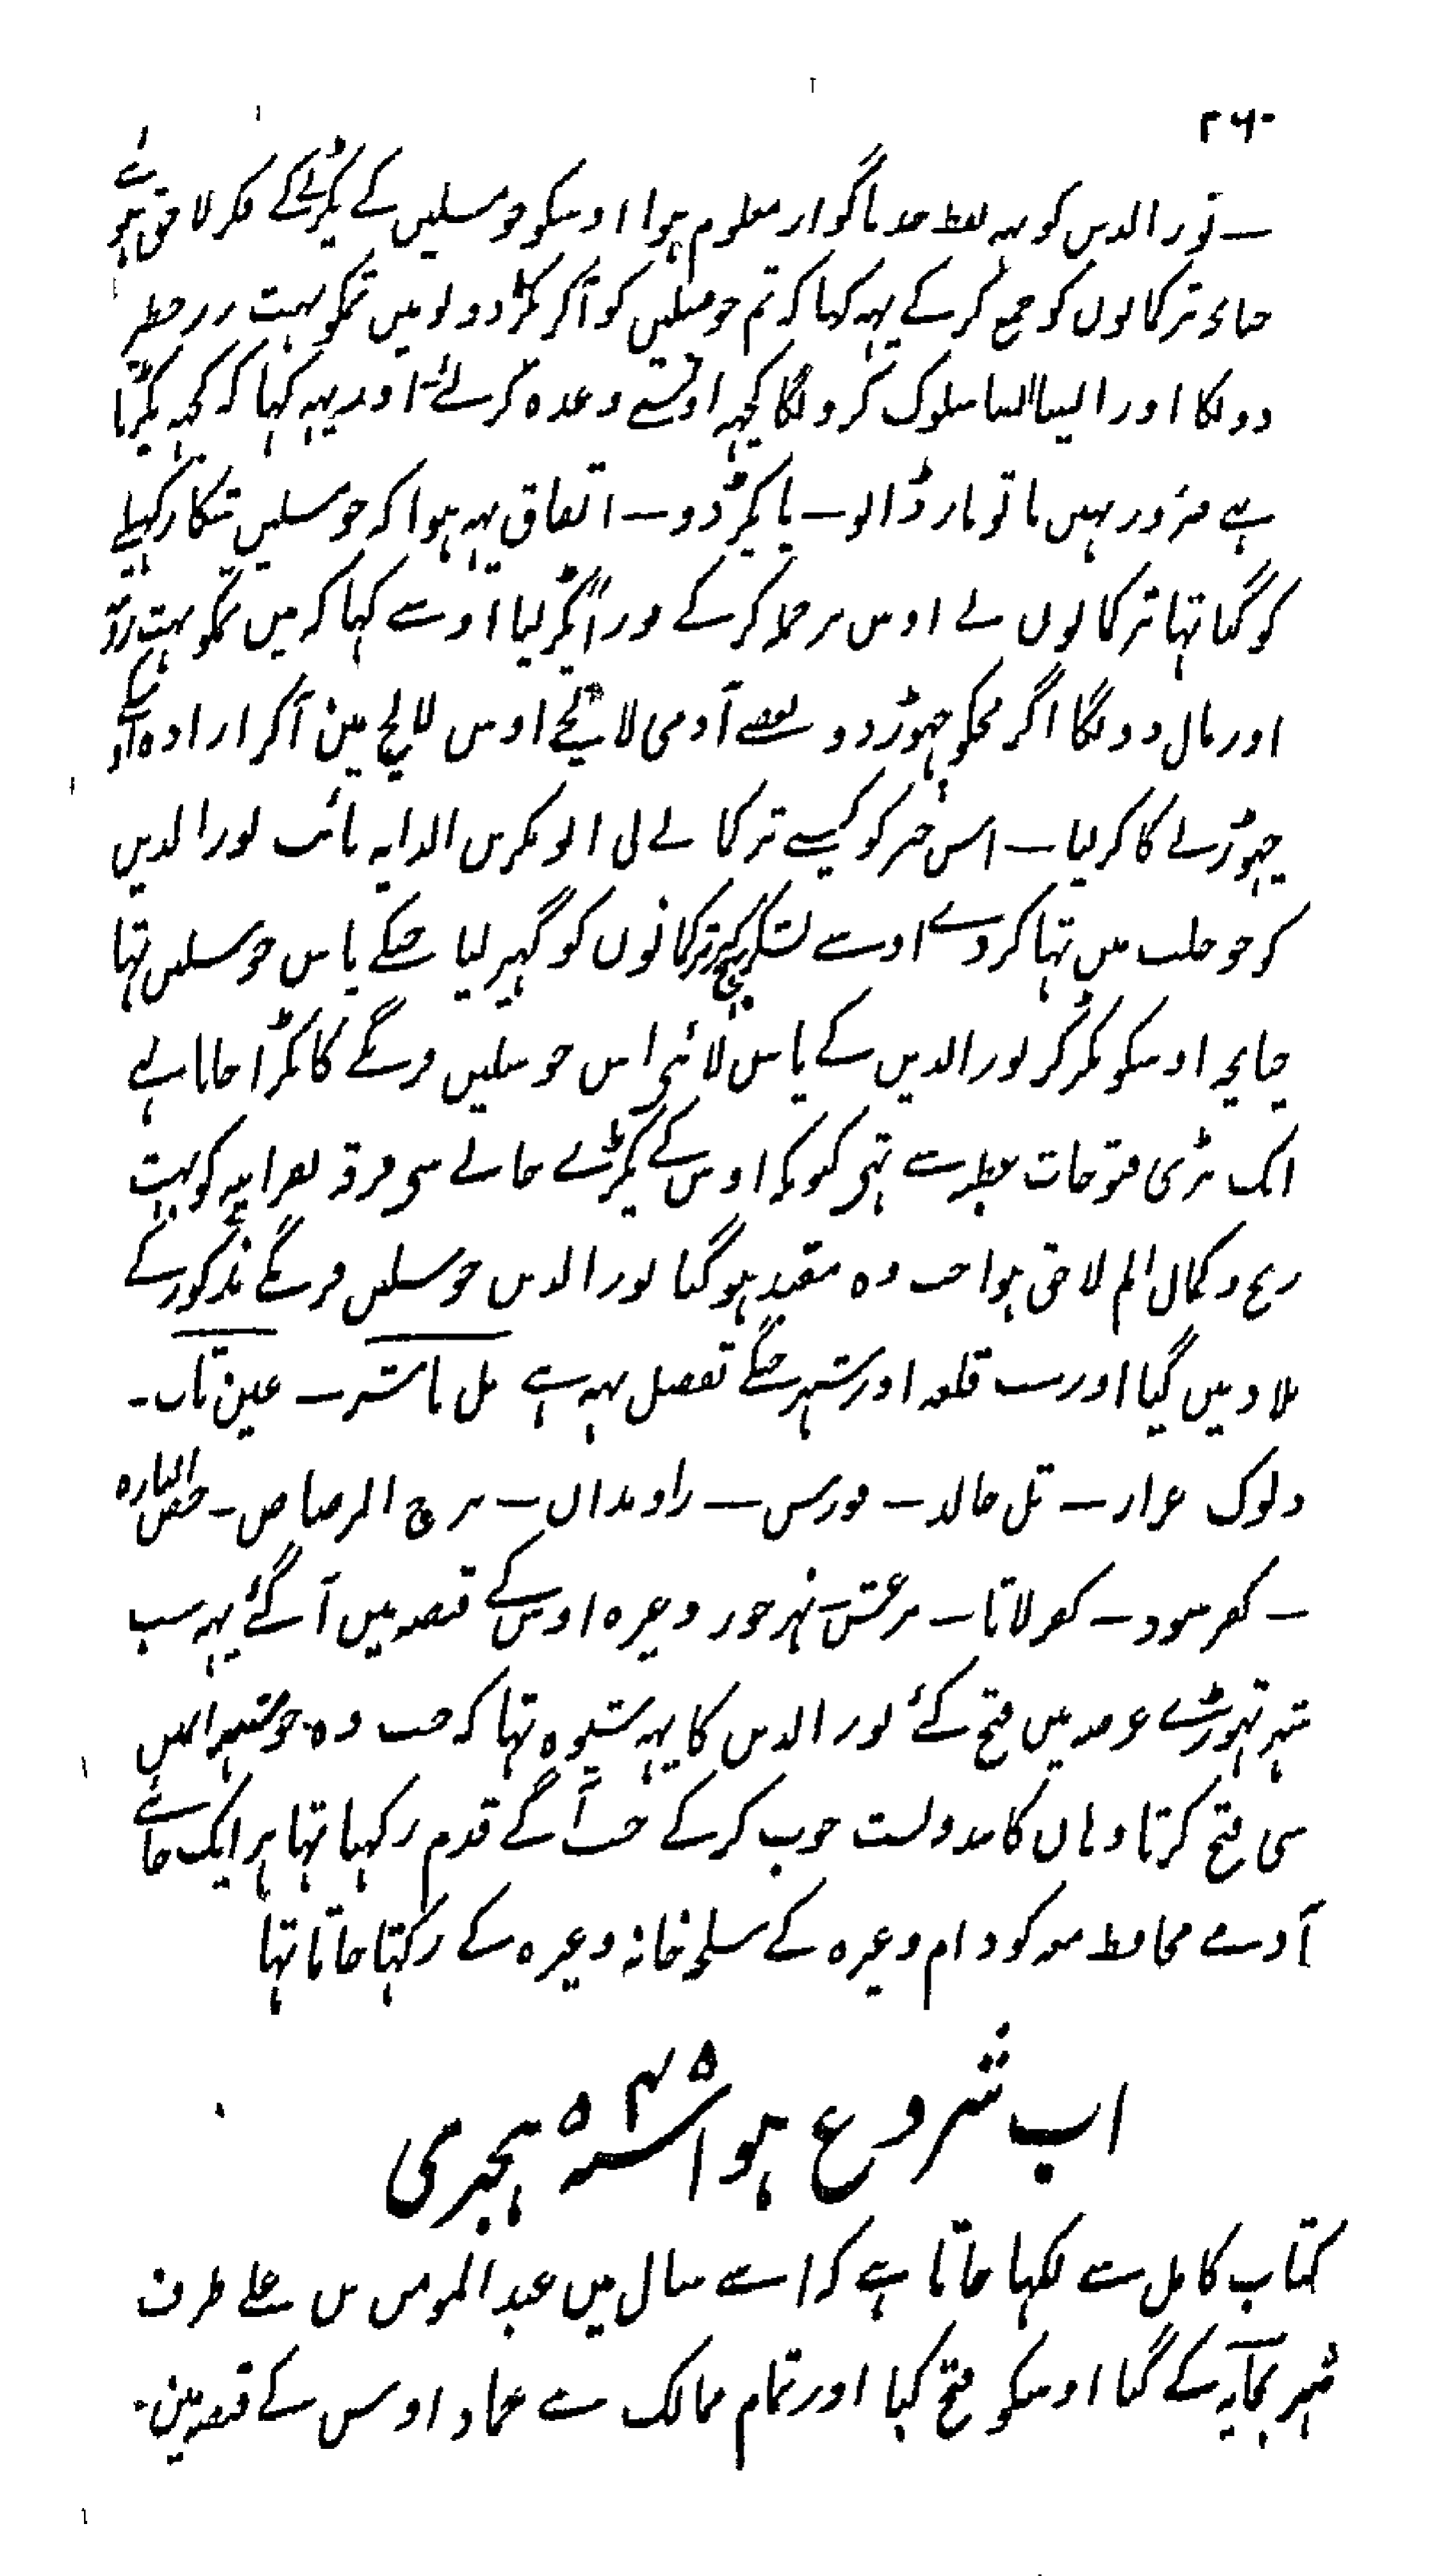 ۲۶۰
ــ نور الدین کو یہ لفظ ناگوار معلوم ہوا اوسکو جوسلین کے پکڑنے کے فکر لاحق ہوئے
ترکمانوں کو جمع کر کے یہہ کہا کہ تم جوسلین کو اگر پکڑ دو تو میں تمکو بہت زر خطیر
دونگا اور ایسا ایسا سلوک کرونگا کچہہ اونسے وعدہ کر لئے اور یہہ کہا کہ کچہہ پکڑنا
ہے ضرور نہیں یا تو مار ڈالو ــ یا پکڑ دو ــ اتفاق یہہ ہوا کہ جوسلین شکار کہیلنے
کو گیا تہا ترکمانوں نے اوس پر حملہ کر کے فوراً پکڑ لیا اوسے کہا کہ میں تمکو بہت زر
اور مال دونگا اگر مجکو چہوڑ دو بعضے آدمی لالچے اوس لالچ مین آکر ارادہ
چہوڑنے کا کر لیا ــ اس خبر کو کسے ترکمان نے ابو بکر بن الدایہ نائب نور الدین
کو جو حلب میں تہا کر دے اوسے لشکر بہیجکر ترکمانوں کو گہیر لیا جنکے پاس جوسلین تہا
چنانچہ اوسکو پکڑ کر نور الدین کے پاس لائی اس جوسلین فرنگے کا پکڑا جانا ہے
ایک بڑی فتوحات عظیمہ سے تہی کیونکہ اوس کے پکڑے جانے سی فرقہ نصرانیہ کو بہت
رنج و کمال الم لاحق ہوا جب وہ مقید ہو گیا نور الدین جوسلین فرنگے مذکور کے
بلاد میں گیا اور سب قلعہ اور شہر جنکے تفصل یہہ ہے تل باشر ــ عین تاب ــ
دلوک عزاز ــ تل خالد ــ قورس ــ راوندان ــ برج الرصاص ــ حصن البارہ
ــ کفر سود ــ کفر لاتا ــ مرعش ــ نہر جوز وغیرہ اوس کے قبضہ میں آ گئے یہہ سب
شہر تہوڑے عرصہ میں فتح کئے نور الدین کا یہہ شیوہ تہا کہ جب وہ جو شہر
سی فتح کرتا وہاں کا بندوبست خوب کر کے جب آگے قدم رکہتا تہا ہر ایک جائے
آدمے محافظ وغیرہ کے سلح خانہ وغیرہ کے رکہتا جاتا تہا
اب شروع ہوا ۵۴۷ ہجری
کتاب کامل سے لکہا جاتا ہے کہ اسے سال میں عبد المومن بن علے طرف
شہر بجایہ کے گیا اوسکو فتح کیا اور تمام ممالک بنے حماد اوس کے قبضہ مین